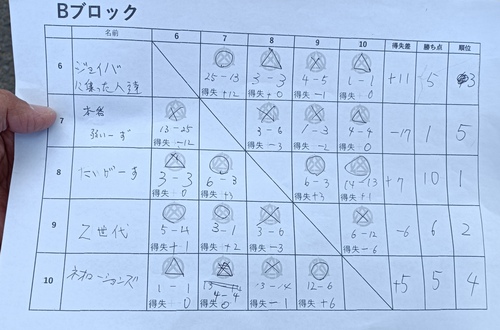 Bブロック
名前 6 7 8 9 10 得失差 勝ち点 順位
6 ジェイバに集った人達 25-13 3-3 4-5 1-1 +11 5 3
得失 +12 得失 +0 得失 -1 得失 0
7 13-25 3-6 1-3 4-4 -17 1 5
得失 -12 得失 -3 得失 -2 得失 0
8 たいがーす 3-3 6-3 6-3 14-13 +7 10 1
得失 0 得失 +3 得失 +3 得失 +1
9 Z世代 5-4 3-1 3-6 6-12 -6 6 2
得失 +1 得失 +2 得失 -3 得失 -6
10 1-1 4-4 13-14 12-6 +5 5 4
得失 0 得失 0 得失 -1 得失 +6